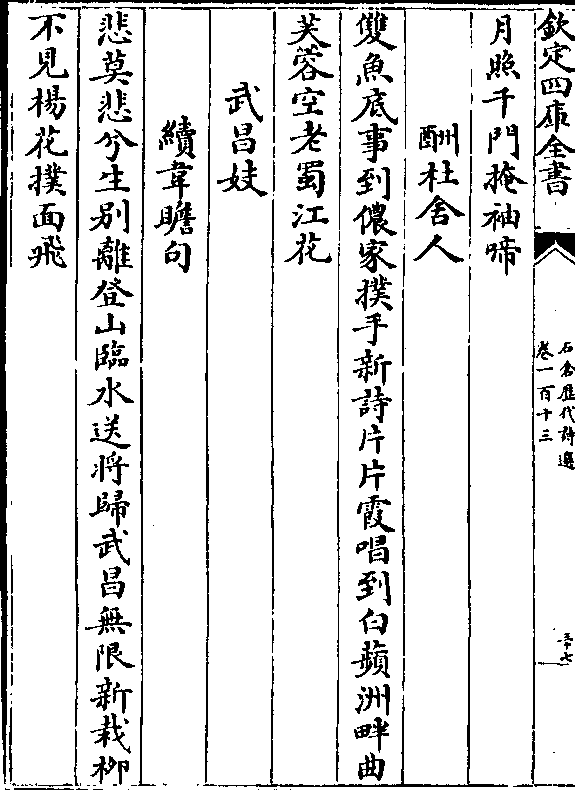 欽定四庫全書
石倉歷代詩選
卷一百十三
三十七
月照千門掩袖啼
酬杜舍人
雙魚底事到儂家撲手新詩片片霞唱到白蘋洲畔曲
芙蓉空老蜀江花
武昌妓
續韋瞻句
悲莫悲兮生别離登山臨水送將歸武昌無限新栽柳
不見楊花撲面飛